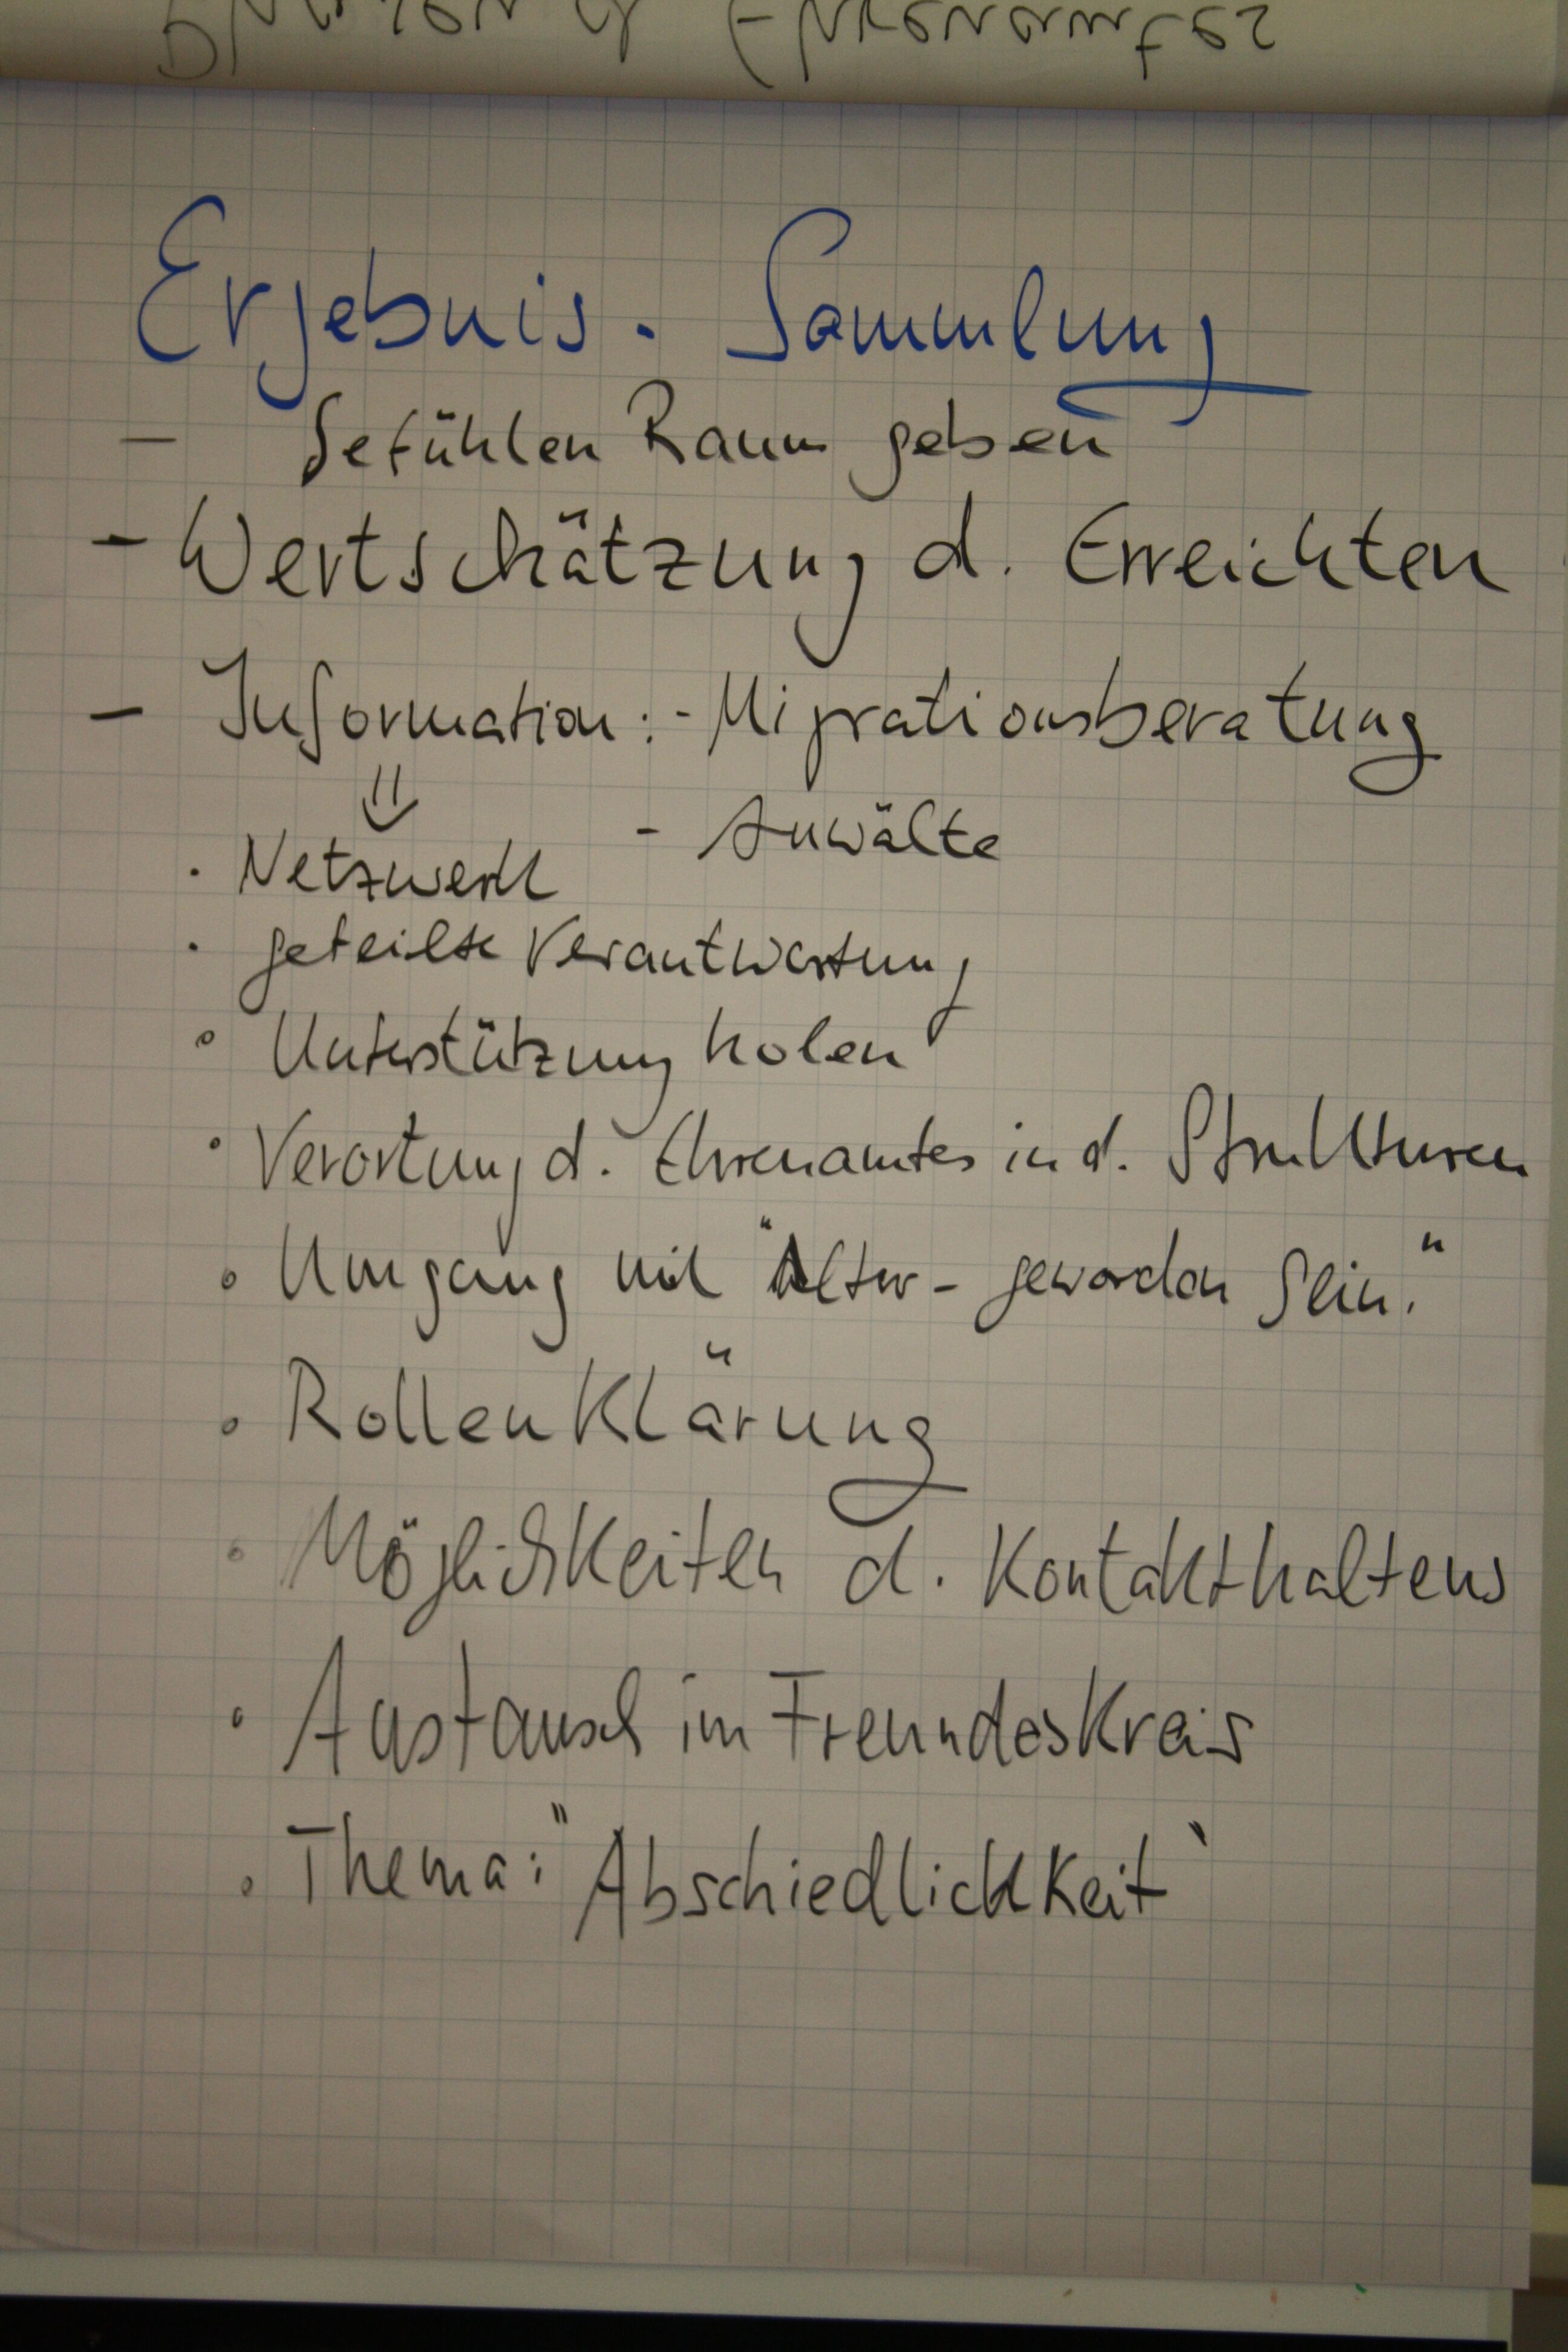 Ehrenamtes
Ergebnis. Sammlung
- Gefühlen Raum geben
- Wertschätzung d. Erreichten
- Information: - Migrationsberatung
⇓
- Anwälte
· Netzwerk
· geteilte Verantwortung
° Unterstützung holen
° Verortung d. Ehrenamtes in d. Strukturen
° Umgang mit "Älter - geworden sein."
° Rollenklärung
° Möglichkeiten d. Kontakthaltens
° Austausch im Freundeskreis
° Thema: "Abschiedlichkeit"